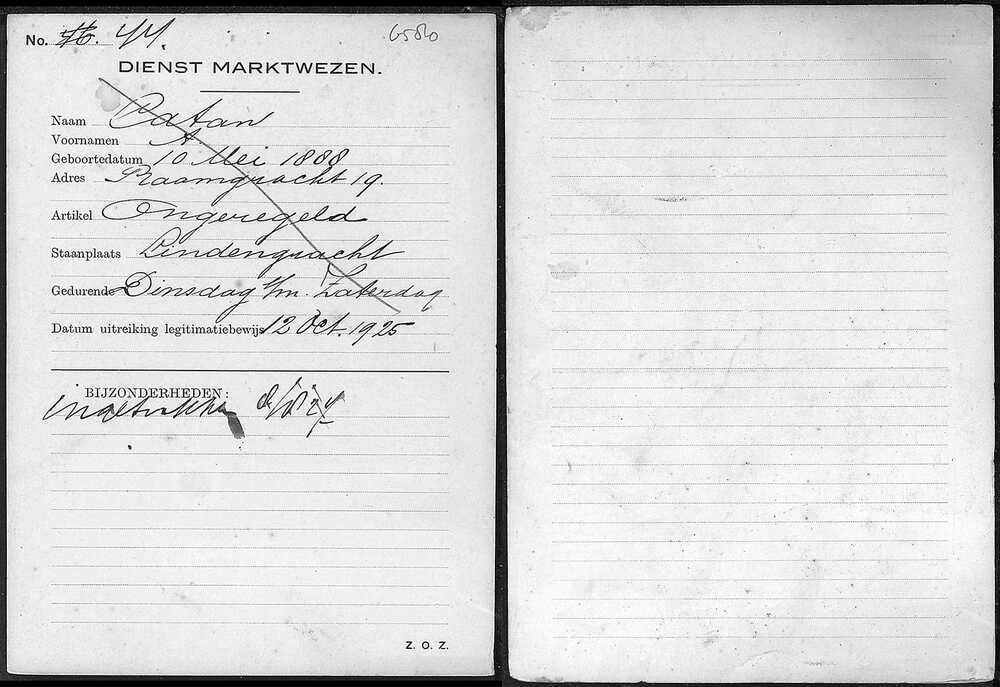 No. 44.
6580
DIENST MARKTWEZEN.
Naam Catan
Voornamen A.
Geboortedatum 10 Mei 1888
Adres Raamgracht 19.
Artikel Ongeregeld
Staanplaats Lindengracht
Gedurende Dinsdag t/m. Zaterdag
Datum uitreiking legitimatiebewijs 12 Oct. 1925
BIJZONDERHEDEN:
ingetrokken
Z. O. Z.